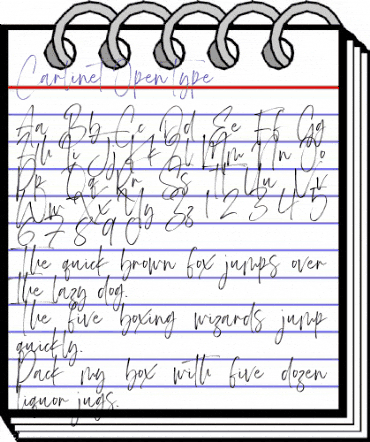 Carlinet OpenType
Aa Bb Cc Dd Ee Ff Gg
Hh Ii Jj Kk Ll Mm Nn Oo
Pp Qq Rr Ss Tt Uu Vv
Ww Xx Yy Zz 1 2 3 4 5
6 7 8 9 0
The quick brown fox jumps over
the lazy dog.
The five boxing wizards jump
quickly.
Pack my box with five dozen
liquor jugs.